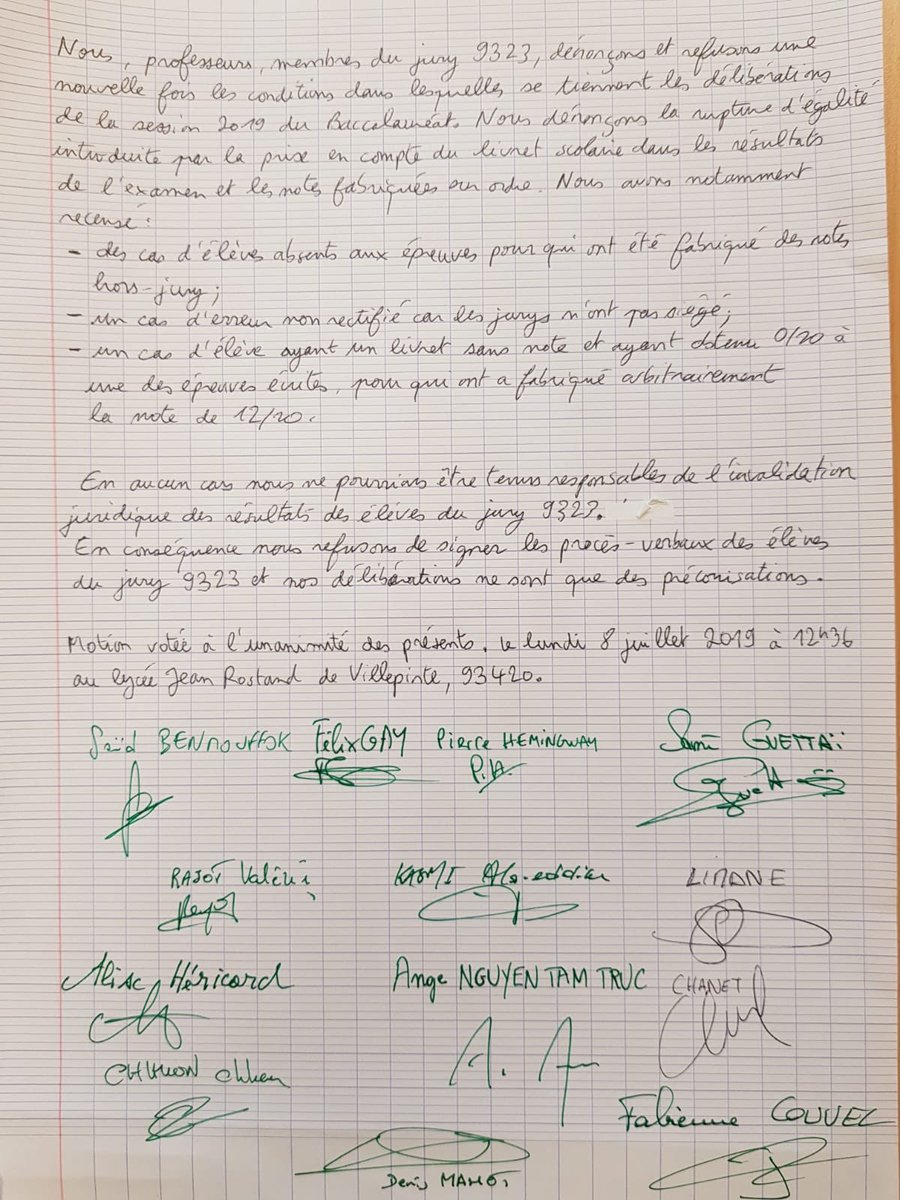 Nous, professeurs, membres du jury 9323, dénonçons et refusons une
nouvelle fois les conditions dans lesquelles se tiennent les délibérations
de la session 2019 du Baccalauréat. Nous dénonçons la rupture d'égalité
introduite par la prise en compte du livret scolaire dans les résultats
de l'examen et les notes fabriquées sur ordre. Nous avons notamment
recensé :
- des cas d'élève absents aux épreuves pour qui ont été fabriqué des notes
hors-jury ;
- un cas d'erreur non rectifié car les jurys n'ont pas siégé ;
- un cas d'élève ayant un livret sans note et ayant obtenu 0/20 à
une des épreuves écrites, pour qui ont a fabriqué arbitrairement
la note de 12/20.
En aucun cas nous ne pourrions être tenus responsables de l'invalidation
juridique des résultats des élèves du jury 9323.
En conséquence nous refusons de signer les procès-verbaux des élèves
du jury 9323 et nos délibérations ne sont que des préconisations.
Motion votée à l'unanimité des présents, le lundi 8 juillet 2019 à 12h36
au lycée Jean Rostand de Villepinte, 93420.
Saïd Félix GAY Pierre HEMINGWAY GUETTAÏ
P.H.
RAJOT KASMI LIMANE
Alise Héricard Ange NGUYEN TAM TRUC CHANET
A. A
Fabienne COUVEZ
Denis MAHOT